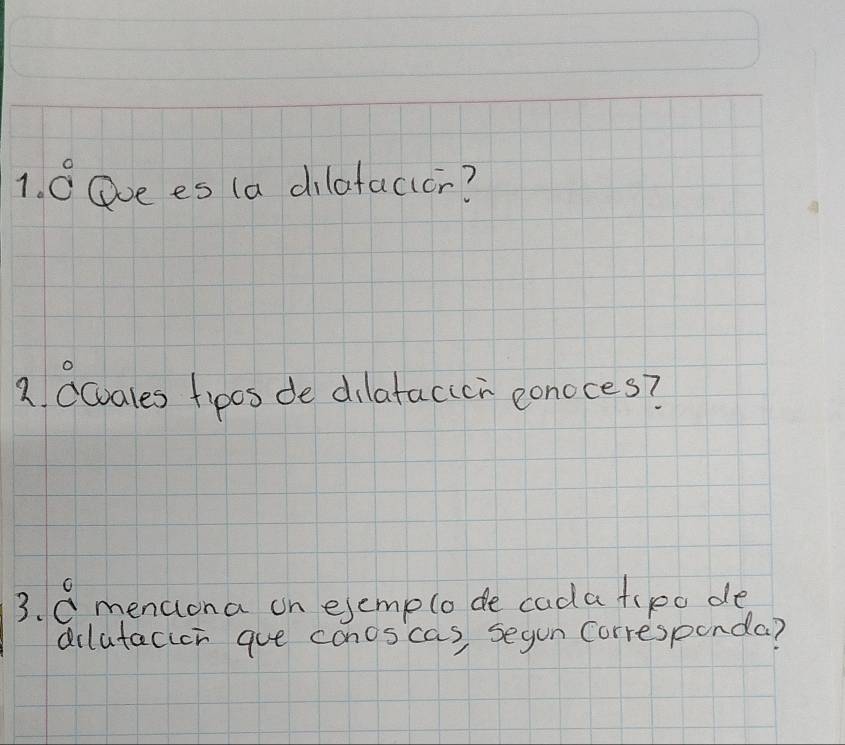 1. ¿Que es la dilatación?
2. ¿Cuales tipos de dilatación conoces?
3. ¿ menciona un ejemplo de cada tipo de
dilatación que conoscas, segun corresponda?